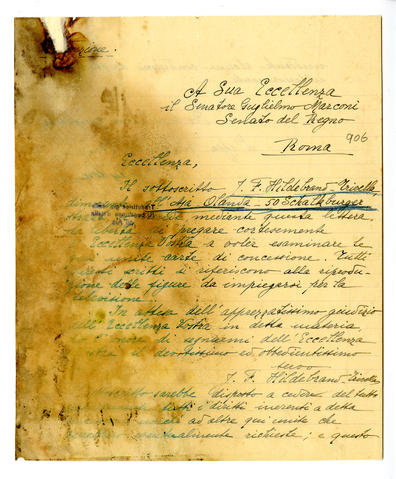 A Sua Eccellenza
il Senatore Guglielmo Marconi
Senato del Regno
Roma
906
Eccellenza,
Il sottoscritto J. F. Hildebrand-Tricella
all'Aja Olanda - 50 Schalkburger
mediante questa lettera
la libertà di pregare cortesemente
Eccellenza Vostra a voler esaminare le
qui unite carte di concessione. Tutti
questi scritti si riferiscono alla riprodu-
zione delle figure da impiegarsi per la
televisione.
In attesa dell'apprezzatissimo giudizio
dell'Eccellenza Vostra in detta materia,
l'onore di segnarmi dell'Eccellenza
devotissimo ed obbedientissimo
servo
J. F. Hildebrand-Tricella
sarebbe disposto a cedere del tutto
tutti i diritti inerenti a detta
ad altre qui unite che
eventualmente richieste; e questo